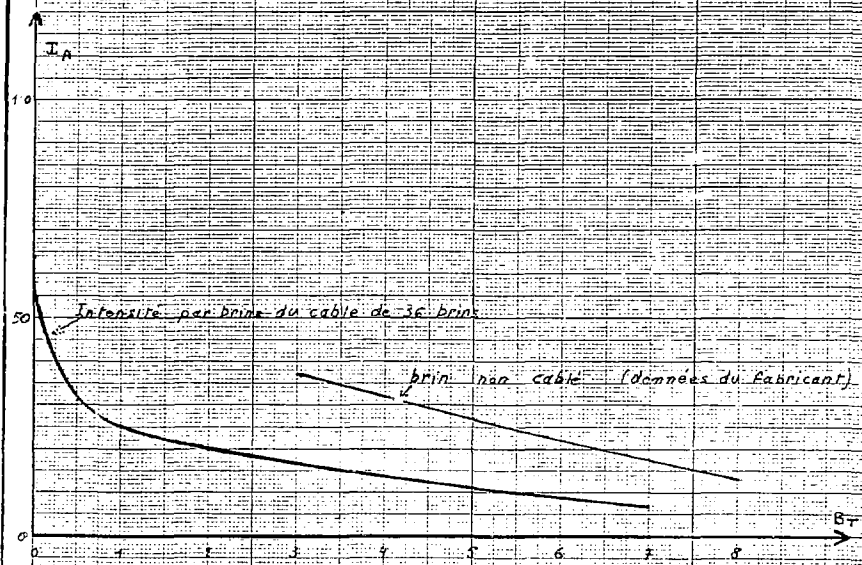 I_A
10
50
Intensité par brins du cable de 36 brins
brin non cablé (données du fabricant)
0
B_T
0 1 2 3 4 5 6 7 8